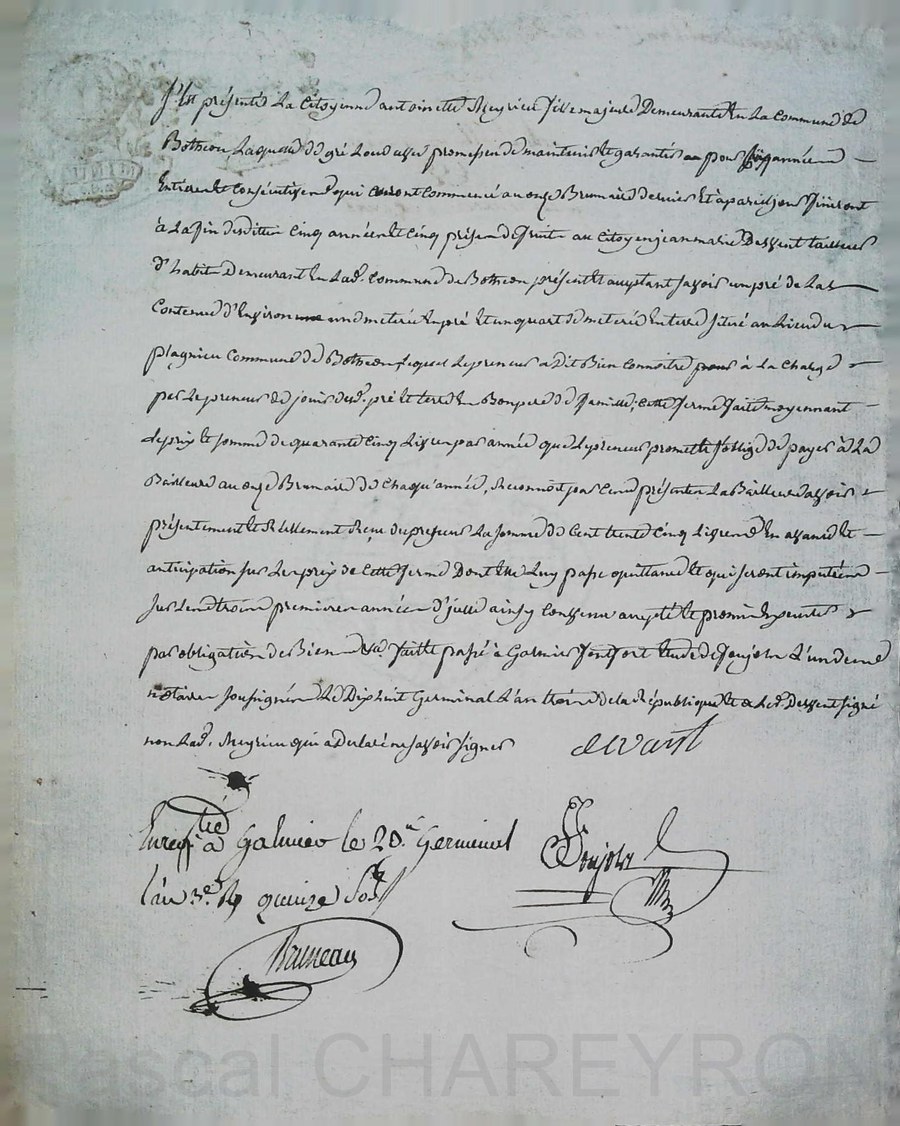 S'est présentée La Citoyenne antoinette Meyrieu fille majeure Demeurante En La Commune de
Botheon, Laquelle de gré Loue avec promesse de maintenir Et garantir pour cinq années
Entieres et Consécutives qui ont Commencé au onze Brumaire dernier Et a pareil jour finiront
à La fin desdittes Cinq années et Cinq prises de fruits au Citoyen jean marie Devvent tailleur
d'habits Demeurant En Lad. Commune de Botheon présent Et acceptant savoir un pré de La
Contenue d'Environ une meterée En pré Et un quart de meterée En terre situé au Lieu du
plagnieu Commune de Botheon, Lequel Le preneur a Dit Bien Connoitre à La Charge
par Le preneur de jouir dud. pré Et terre En Bon pere de famille, Cette ferme faite moyennant
Le prix Et somme de quarante Cinq Livres par année que Le preneur promet Et s'oblige de payer à La
Bailleure au onze Brumaire de Chaqu'année, Reconnoit par Ces présentes La Bailleure avoir
présentement Et Réellement Reçu du preneur La somme de Cent trente Cinq Livres En avance Et
anticipation sur Le prix de Cette ferme Dont Elle Luy passe quittance Et qui seront imputées
sur Les trois premieres années d'icelle ainsy Convenu accepté Et promis Executer
par obligation de Biens fait Et passé à Galmier Fontfort Etude de Poujolx L'un des
notaires soussignés Le Dix huit Germinal L'an trois de la République Et Led. Devvent signé
non Lad. Meyrieu qui a Declaré ne savoir signer
devant
Enregistré à Galmier le 20.e Germinal
l'an 3.e R quinze Sols
Poujolx
Bruneau
Pascal CHAREYRON